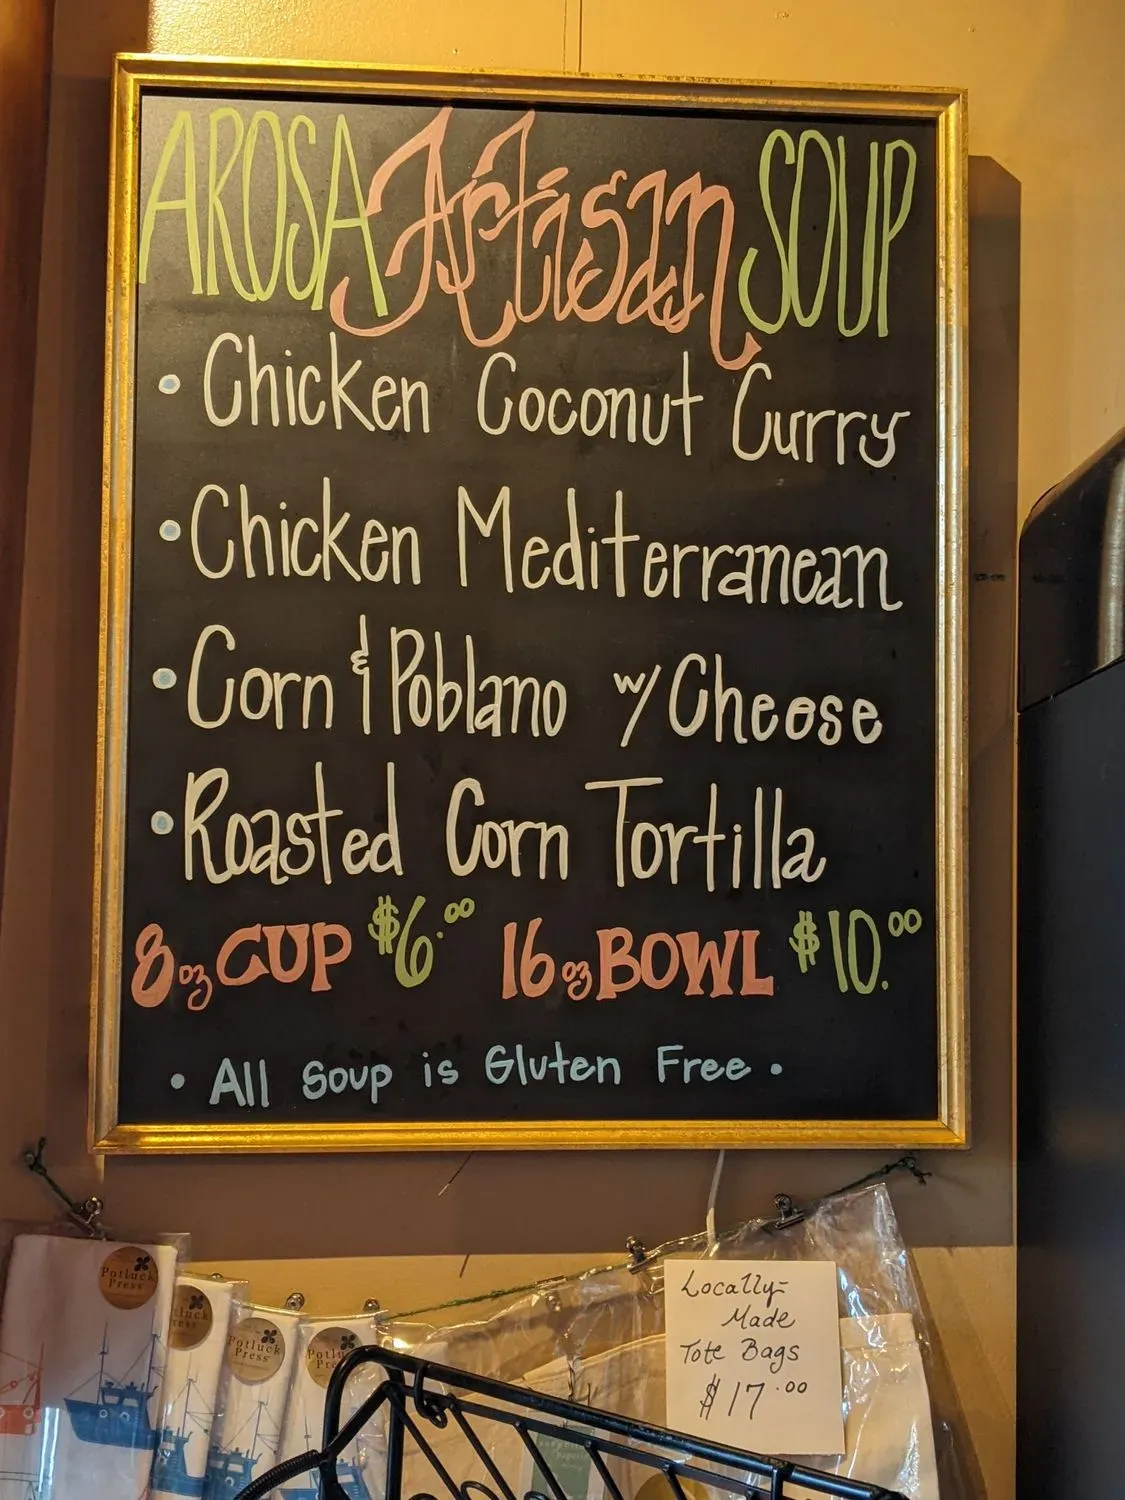 AROSA Artisan SOUP
• Chicken Coconut Curry
• Chicken Mediterranean
• Corn & Poblano w/ Cheese
• Roasted Corn Tortilla
8 oz CUP $6.00 16 oz BOWL $10.00
• All Soup is Gluten Free •
Potluck
Press
Potluck
Press
Locally-
Made
Tote Bags
$17.00